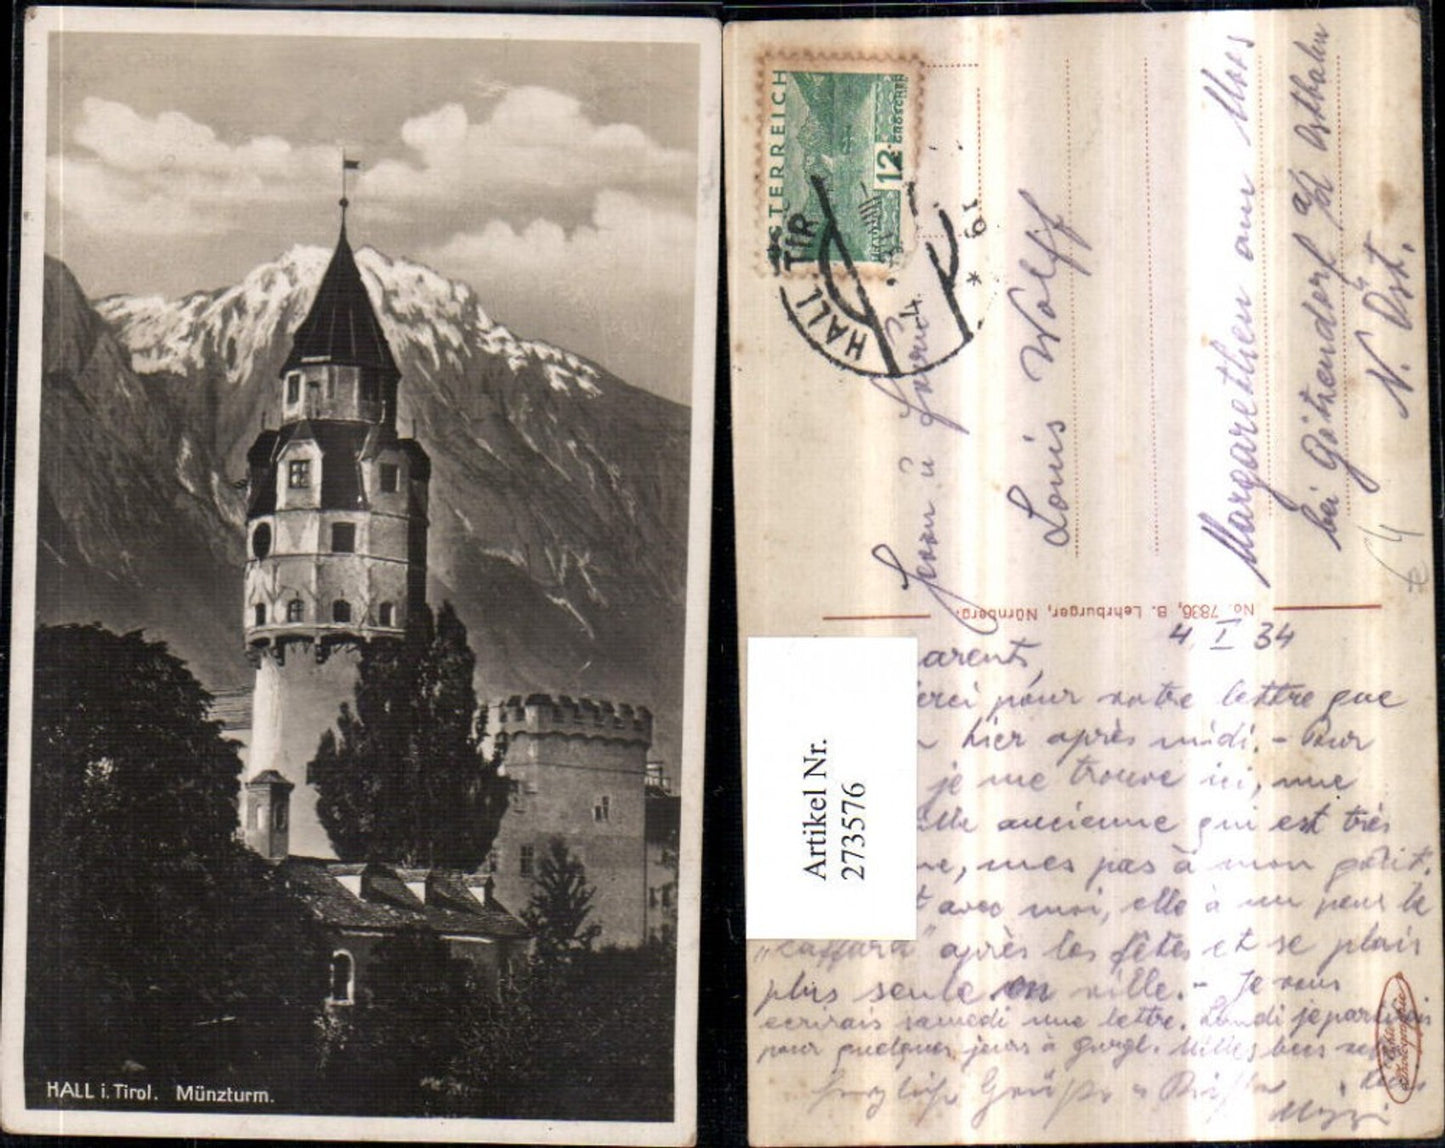 HALL i. Tirol. Münzturm.
ÖSTERREICH
12
GROSCHEN
TRAUNSEE
HALL TIR
Louis Wolff
Margarethen am Moos
bei Götzendorf a/d Ostbahn
N. Öst.
No. 7836, B. Lehrburger, Nürnberg.
Artikel Nr.
273576
4. I 34
arents,
erci pour votre lettre que
hier après midi. - Pour
je me trouve ici, une
ille ancienne qui est très
ne, mes pas à mon goût.
t avec moi, elle a un peu le
après les fêtes et se plais
plus seule en ville. - Je vous
ecrirais samedi une lettre. Lundi je
pour quelques jours à Gurgl.
Grüße
Mizzi